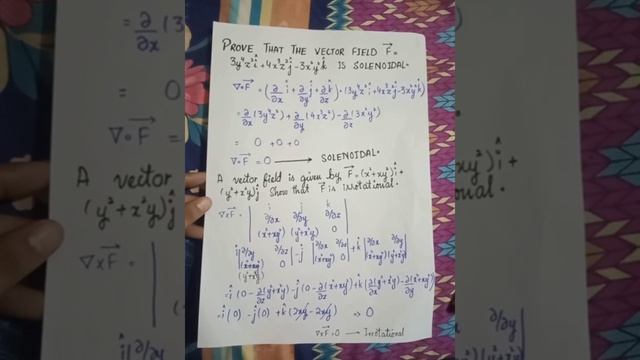 PROVE THAT THE VECTOR FIELD F⃗ =
3y⁴z²î + 4x³z²ĵ - 3x²y²k̂ IS SOLENOIDAL.
∇·F⃗ = (∂/∂x î + ∂/∂y ĵ + ∂/∂z k̂) · (3y⁴z²î + 4x³z²ĵ - 3x²y²k̂)
= ∂/∂x (3y⁴z²) + ∂/∂y (4x³z²) - ∂/∂z (3x²y²)
= 0 + 0 + 0
∇·F⃗ = 0 → SOLENOIDAL.
A vector field is given by F⃗ = (x² + xy²) î +
(y² + x²y) ĵ Show that F⃗ is irrotational.
∇×F⃗ = | i j k
∂/∂x ∂/∂y ∂/∂z
(x²+xy²) (y²+x²y) 0 |
i | ∂/∂y ∂/∂z | - j | ∂/∂x ∂/∂z | + k | ∂/∂x ∂/∂y |
(x²+xy²) 0 (x²+xy²) 0 (x²+xy²) (y²+x²y)
(y²+x²y)
= i (0 - ∂/∂z (y²+x²y)) - j (0 - ∂/∂z (x²+xy²)) + k̂ (∂/∂x (y²+x²y) - ∂/∂y (x²+xy²))
= î (0) - ĵ (0) + k̂ (2xy - 2xy) ⇒ 0
∇×F = 0 → Irrotational